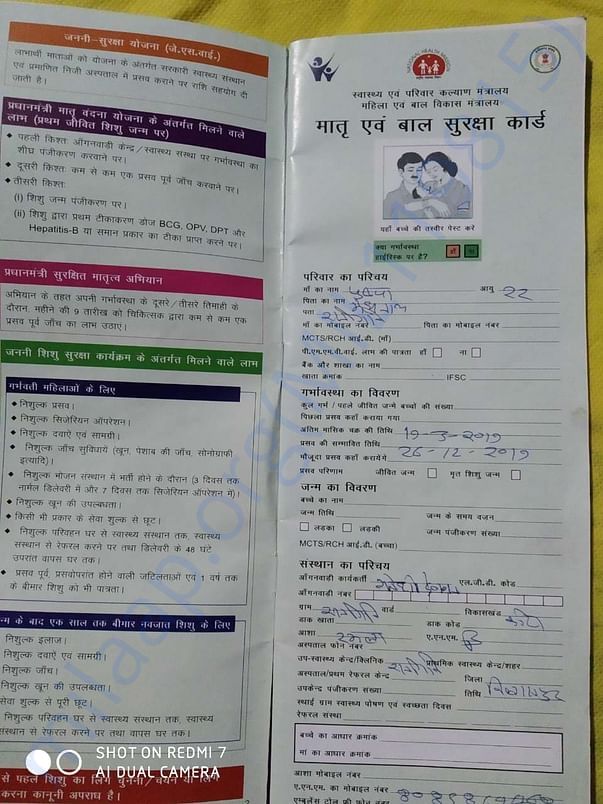 जननी-सुरक्षा योजना (जे.एस.वाई.)
लाभार्थी माताओं को योजना के अंतर्गत सरकारी स्वास्थ्य संस्थान
एवं प्रमाणित निजी अस्पताल में प्रसव कराने पर राशि सहयोग दी
जाती है।
प्रधानमंत्री मातृ वंदना योजना के अंतर्गत मिलने वाले
लाभ (प्रथम जीवित शिशु जन्म पर)
पहली किश्तः आँगनवाड़ी केन्द्र/स्वास्थ्य संस्था पर गर्भावस्था का
शीघ्र पंजीकरण करवाने पर।
दूसरी किश्तः कम से कम एक प्रसव पूर्व जाँच करवाने पर।
तीसरी किश्तः
(i) शिशु जन्म पंजीकरण पर।
(ii) शिशु द्वारा प्रथम टीकाकरण डोज BCG, OPV, DPT और
Hepatitis-B या समान प्रकार का टीका प्राप्त करने पर।
प्रधानमंत्री सुरक्षित मातृत्व अभियान
अभियान के तहत अपनी गर्भावस्था के दूसरे/तीसरे तिमाही के
दौरान, महीने की 9 तारीख को चिकित्सक द्वारा कम से कम एक
प्रसव पूर्व जाँच का लाभ उठाएं।
जननी शिशु सुरक्षा कार्यक्रम के अंतर्गत मिलने वाले लाभ
गर्भवती महिलाओं के लिए
निशुल्क प्रसव।
निशुल्क सिजेरियन ऑपरेशन।
निशुल्क दवाएं एवं सामग्री।
निशुल्क जाँच सुविधायें (खून, पेशाब की जाँच, सोनोग्राफी
इत्यादि)।
निशुल्क भोजन संस्थान में भर्ती होने के दौरान (3 दिवस तक
नार्मल डिलेवरी में और 7 दिवस तक सिजेरियन ऑपरेशन में)।
निशुल्क खून की उपलब्धता।
किसी भी प्रकार के सेवा शुल्क से छूट।
निशुल्क परिवहन घर से स्वास्थ्य संस्थान तक, स्वास्थ्य
संस्थान से रेफरल करने पर तथा डिलेवरी के 48 घंटे
उपरांत वापस घर तक।
प्रसव पूर्व, प्रसवोपरांत होने वाली जटिलताओं एवं 1 वर्ष तक
के बीमार शिशु को भी पात्रता।
म के बाद एक साल तक बीमार नवजात शिशु के लिए
निशुल्क इलाज।
निशुल्क दवाएं एवं सामग्री।
निशुल्क जाँच।
निशुल्क खून की उपलब्धता।
सेवा शुल्क से पूरी छूट।
निशुल्क परिवहन घर से स्वास्थ्य संस्थान तक, स्वास्थ्य
संस्थान से रेफरल करने पर तथा वापस घर तक।
से पहले शिशु का लिंग चुनना/चयन या लिंग
करना कानूनी अपराध है।
SHOT ON REDMI 7
AI DUAL CAMERA
NATIONAL HEALTH MISSION
स्वास्थ्य एवं परिवार कल्याण मंत्रालय
महिला एवं बाल विकास मंत्रालय
मातृ एवं बाल सुरक्षा कार्ड
यहाँ बच्चे की तस्वीर पेस्ट करें
क्या गर्भावस्था
हाईरिस्क पर है? हाँ ना
परिवार का परिचय
माँ का नाम आयु 22
पिता का नाम
पता
माँ का मोबाइल नंबर पिता का मोबाइल नंबर
MCTS/RCH आई.डी. (माँ)
पी.एम.एम.वी.वाई. लाभ की पात्रता हाँ ना
बैंक और शाखा का नाम
खाता क्रमांक IFSC
गर्भावस्था का विवरण
कुल गर्भ / पहले जीवित जन्मे बच्चों की संख्या
पिछला प्रसव कहाँ कराया गया
अंतिम मासिक चक्र की तिथि 19-3-2019
प्रसव की सम्भावित तिथि 26-12-2019
मौजूदा प्रसव कहाँ करायेंगे
प्रसव परिणाम जीवित जन्म मृत शिशु जन्म
जन्म का विवरण
बच्चे का नाम
जन्म तिथि जन्म के समय वजन
लड़का लड़की जन्म पंजीकरण संख्या
MCTS/RCH आई.डी. (बच्चा)
संस्थान का परिचय
आँगनवाड़ी कार्यकर्ता एल.जी.डी. कोड
आँगनवाड़ी नंबर
ग्राम वार्ड विकासखंड
डाक खाता डाक कोड
आशा ए.एन.एम.
अस्पताल फोन नंबर
उप-स्वास्थ्य केन्द्र/क्लिनिक प्राथमिक स्वास्थ्य केन्द्र/शहर
अस्पताल/प्रथम रेफरल केन्द्र जिला
उपकेन्द्र पंजीकरण संख्या तिथि
स्थाई ग्राम स्वास्थ्य पोषण एवं स्वच्छता दिवस
रेफरल संस्था
बच्चे का आधार क्रमांक
मां का आधार क्रमांक
आशा मोबाइल नंबर
ए.एन.एम. का मोबाइल नंबर
एम्बुलेंस टोल फ्री फोन नंबर